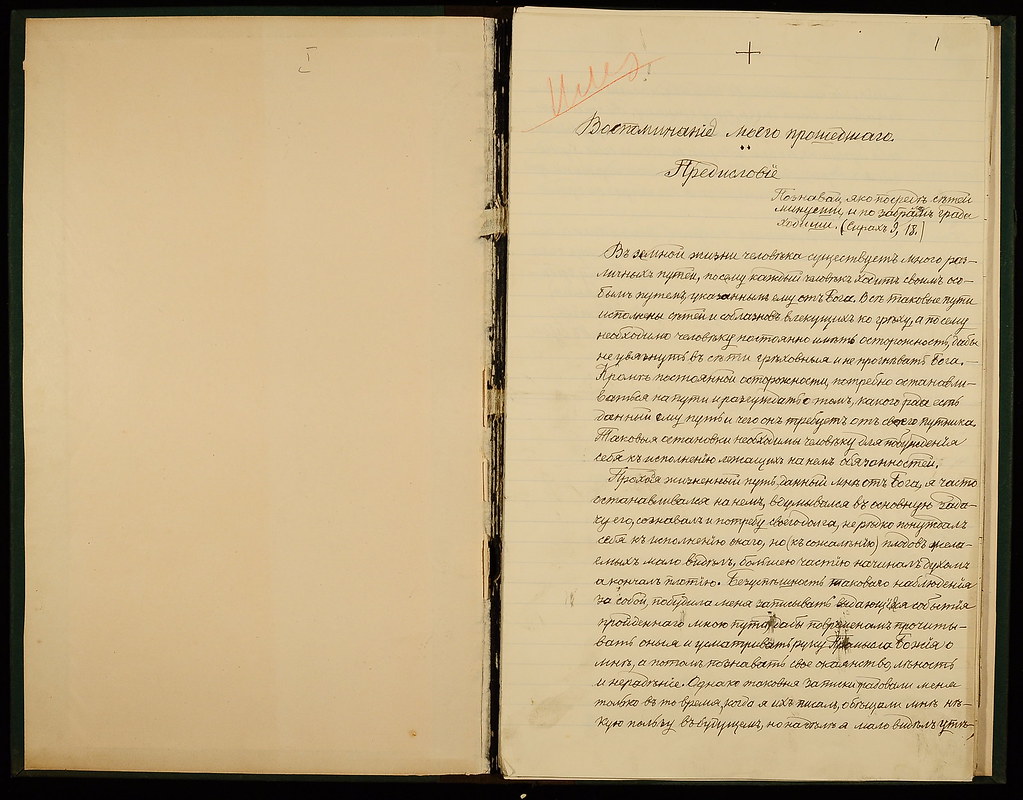 I
1
Воспоминаніе моего прошедшаго.
Предисловіе
Познавай, яко посредѣ сѣтей
минуеши, и по забраламъ града
ходиши. (Сирахъ 9, 18.)
Въ земной жизни человѣка существуетъ много раз-
личныхъ путей, посему каждый человѣкъ ходитъ своимъ осо-
бымъ путемъ, указаннымъ ему отъ Бога. Всѣ таковые пути
исполнены сѣтей и соблазновъ влекущихъ ко грѣху, а посему
необходимо человѣку постоянно имѣть осторожность, дабы
не увязнуть въ сѣти грѣховныя и не прогнѣвать Бога. —
Кромѣ постоянной осторожности, потребно останавли-
ваться на пути и разсуждать о томъ, какого рода есть
данный ему путь и чего онъ требуетъ отъ своего путника.
Таковыя остановки необходимы человѣку для побужденія
себя къ исполненію лежащихъ на немъ обязанностей.
Проходя жизненный путь, данный мнѣ отъ Бога, я часто
останавливался на немъ, вдумывался въ основную зада-
чу его, сознавалъ и потребу своего долга, не рѣдко понуждалъ
себя къ исполненію онаго, но (къ сожалѣнію) плодовъ жела-
емыхъ мало видѣлъ, большею частію начиналъ духомъ
а кончалъ плотію. Безуспѣшность таковаго наблюденія
за собой, побудила меня записывать выдающіяся событія
пройденнаго мною пути, дабы повременамъ прочиты-
вать оныя и усматривать руку Промысла Божія о
мнѣ, а потомъ познавать свое окаянство, лѣность
и нерадѣніе. Однако таковыя записки радовали меня
только въ то время, когда я ихъ писалъ, обѣщали мнѣ нѣ-
кую пользу въ будущемъ, но на дѣлѣ я мало видѣлъ утѣ-